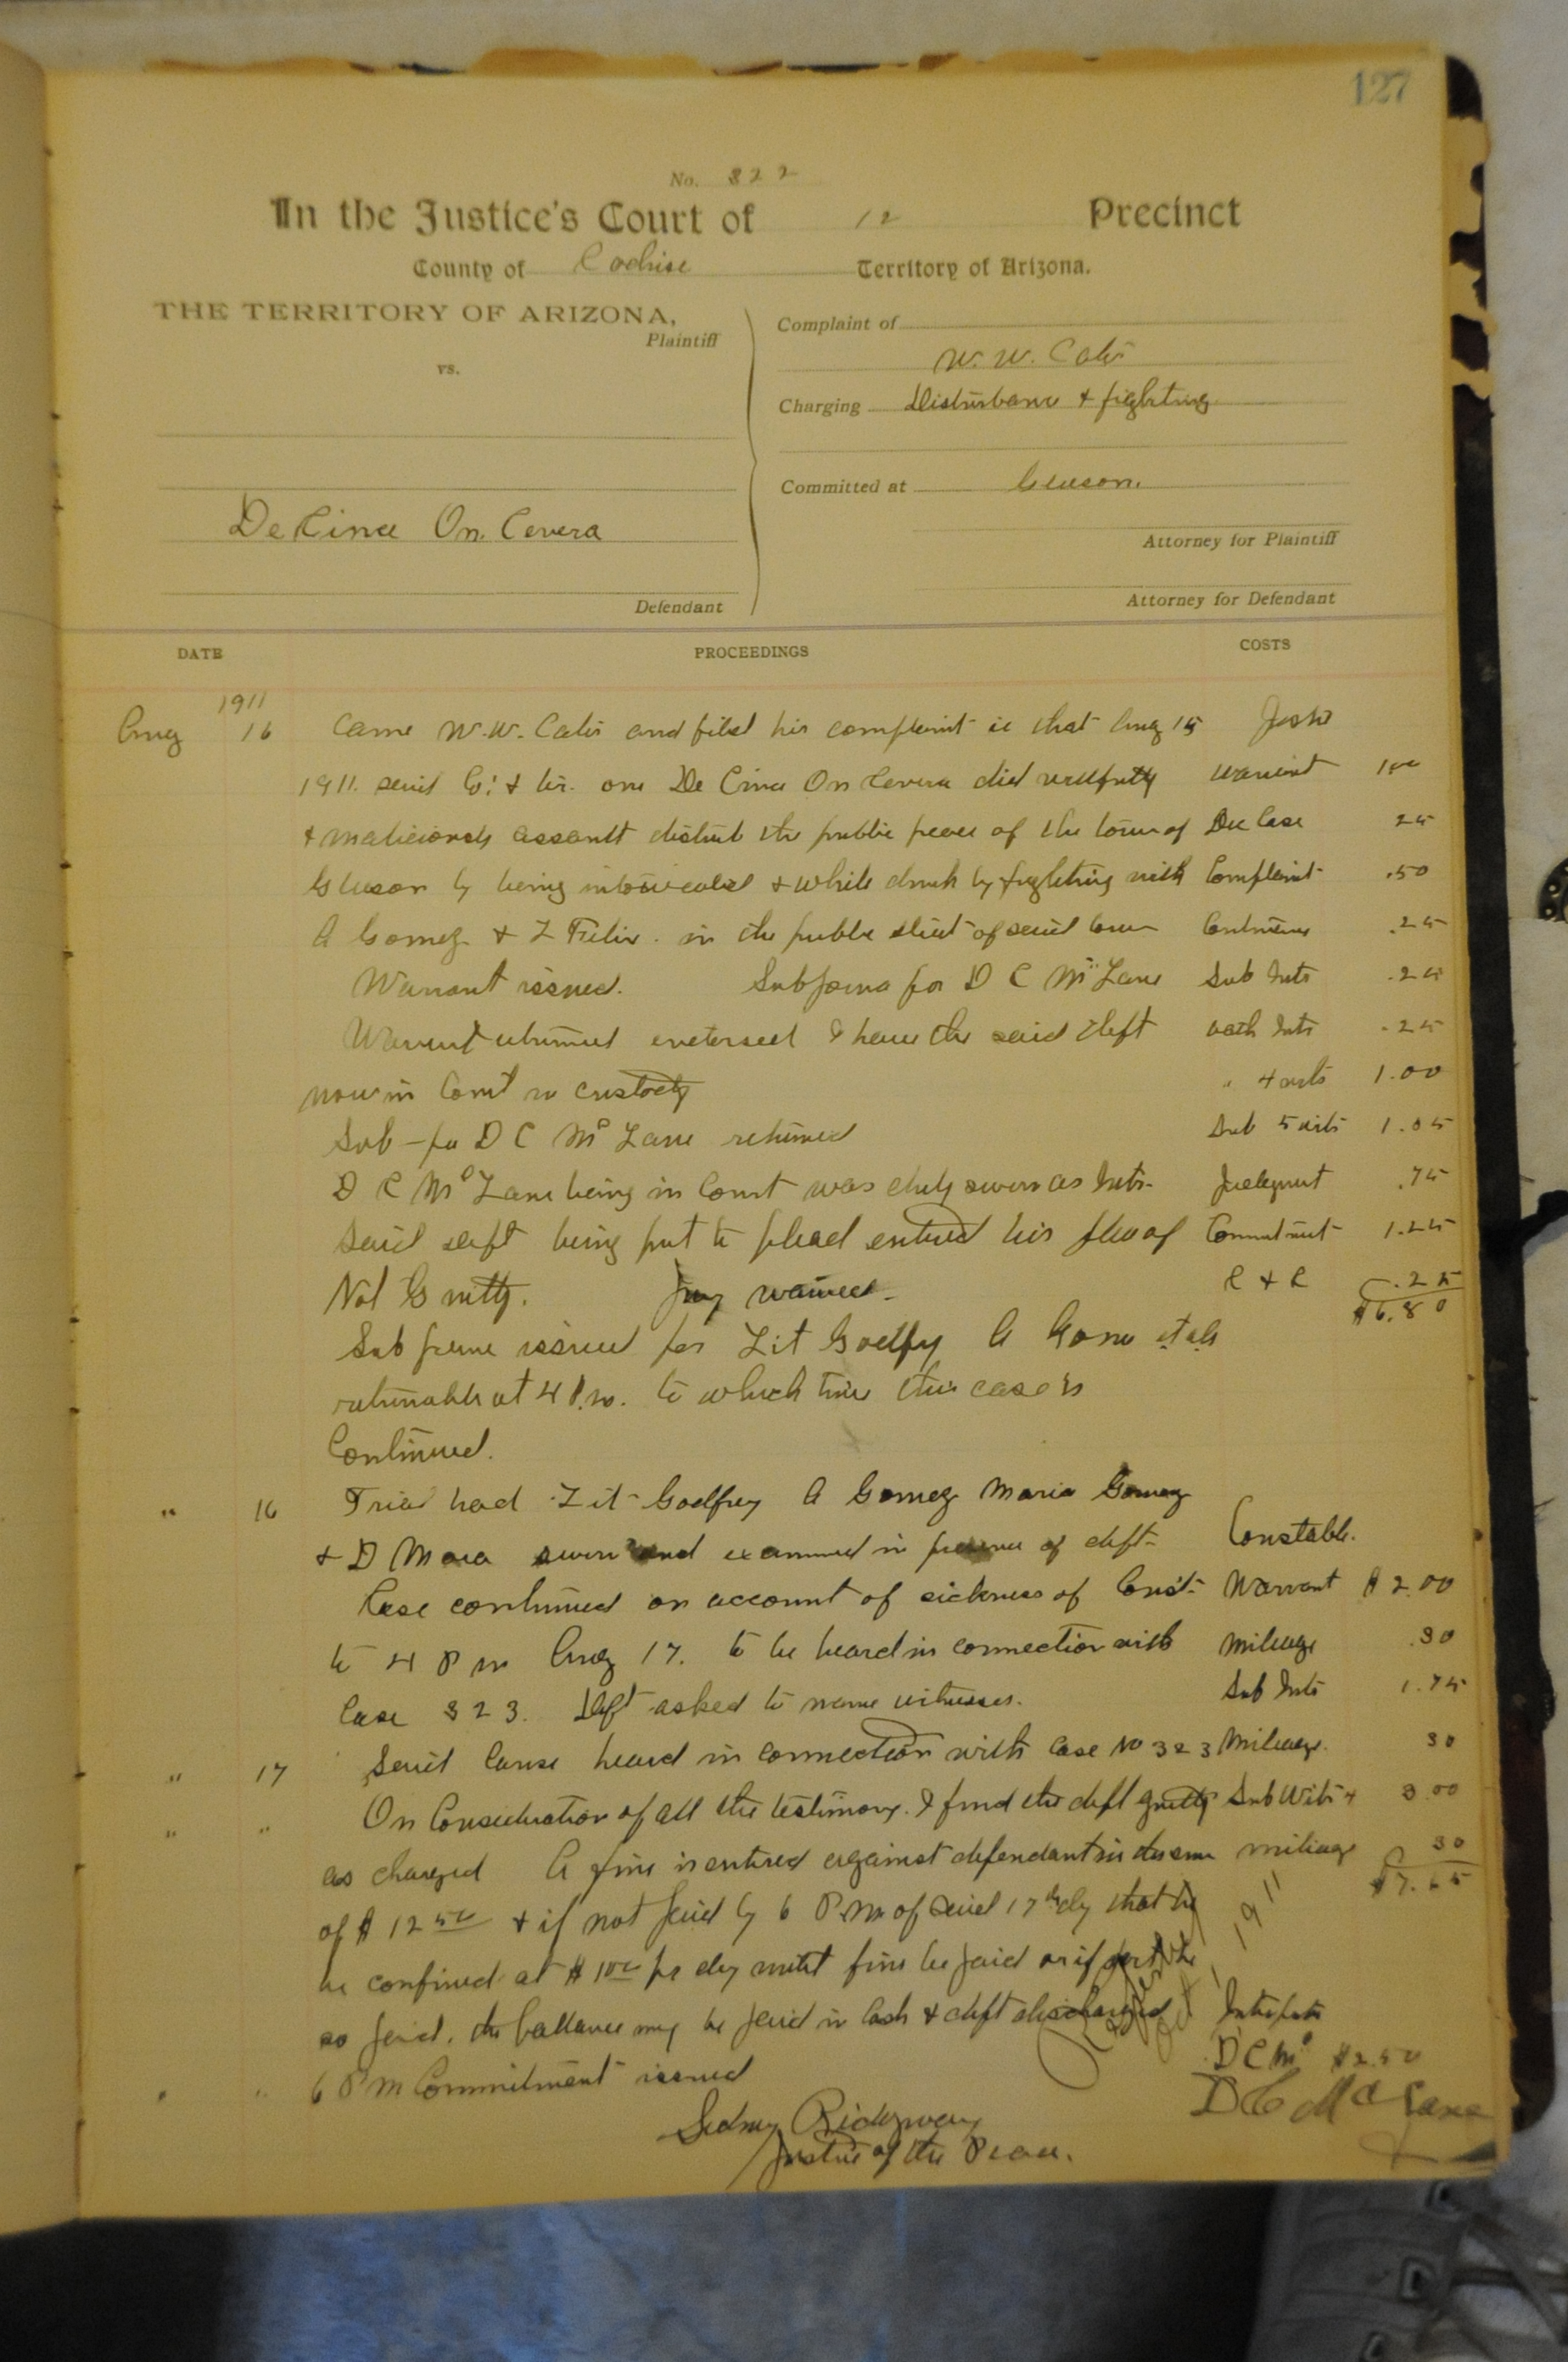 127
No. 322
In the Justice's Court of 12 Precinct
County of Cochise Territory of Arizona.
THE TERRITORY OF ARIZONA,
Plaintiff
vs.
De Cina On. Cevera
Defendant
Complaint of
W. W. Cates
Charging Disturbance & fighting
Committed at Gleason.
Attorney for Plaintiff
Attorney for Defendant
DATE PROCEEDINGS COSTS
1911
Aug 16 Came W. W. Cates and filed his complaint ie that Aug 15 Just
1911. said Co: & Ter. one De Cina On Cevera did wilfully Warrant 1.00
& maliciously assault disturb the public peace of the town of Doc Case 25
Gleason by being intoxicated & while drunk by fighting with Complaint .50
A Gomez & Z Felix. in the public street of said town Continuance .25
Warrant issued. Subpoena for D C Mc Lane Sub Ints .25
Warrant returned endorsed I have the said deft oath Ints .25
now in Court in custody " 4 wits 1.00
Sub - for D C Mc Lane returned Sub 5 wits 1.05
D C Mc Lane being in Court was duly sworn as Intr. Judgment .75
Said deft being put to plead entered his plea of Commitment 1.25
Not Guilty. Jury waived. C & C .25
$6.80
Subpoena issued for Zit Godfry A Gome et als
returnable at 4 P.m. to which time this case is
Continued.
" 16 Trial had Zit Godfrey A Gomez Maria Gomez
& D Mora sworn and examined in presence of deft. Constable.
Case continued on account of sickness of Const Warrant $2.00
to 4 P m Aug 17. to be heard in connection with Mileage .30
Case 323. Deft asked to name witnesses. Sub Ints 1.75
" 17 Said Cause heard in connection with case No 323 Mileage. 30
" " On Consideration of all the testimony. I find the deft guilty Sub Wits 4 3.00
as charged A fine is entered against defendant in the sum mileage 30
$7.65
of $12.50 & if not paid by 6 P.m of said 17th dy that he
be confined at $1.00 pr dy until fine be paid or if part be
so paid. the ballance may be paid in Cash & deft discharged Interpreter
D C Mc $2.50
" " 6 P m Commitment issued D C Mc Lane
1911
Sidney Ridgway
Justice of the Peace.